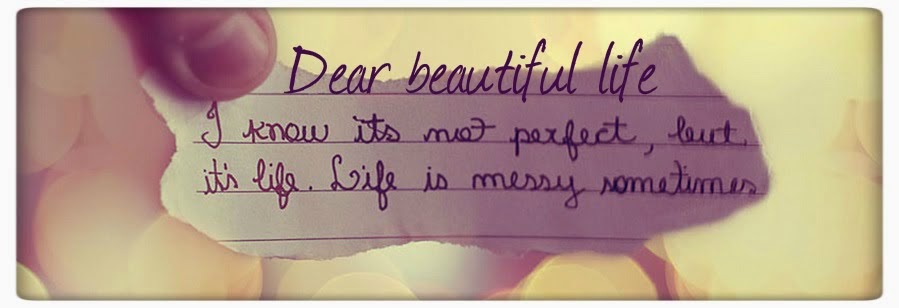 Dear beautiful life
I know its not perfect, but
it's life. Life is messy sometimes